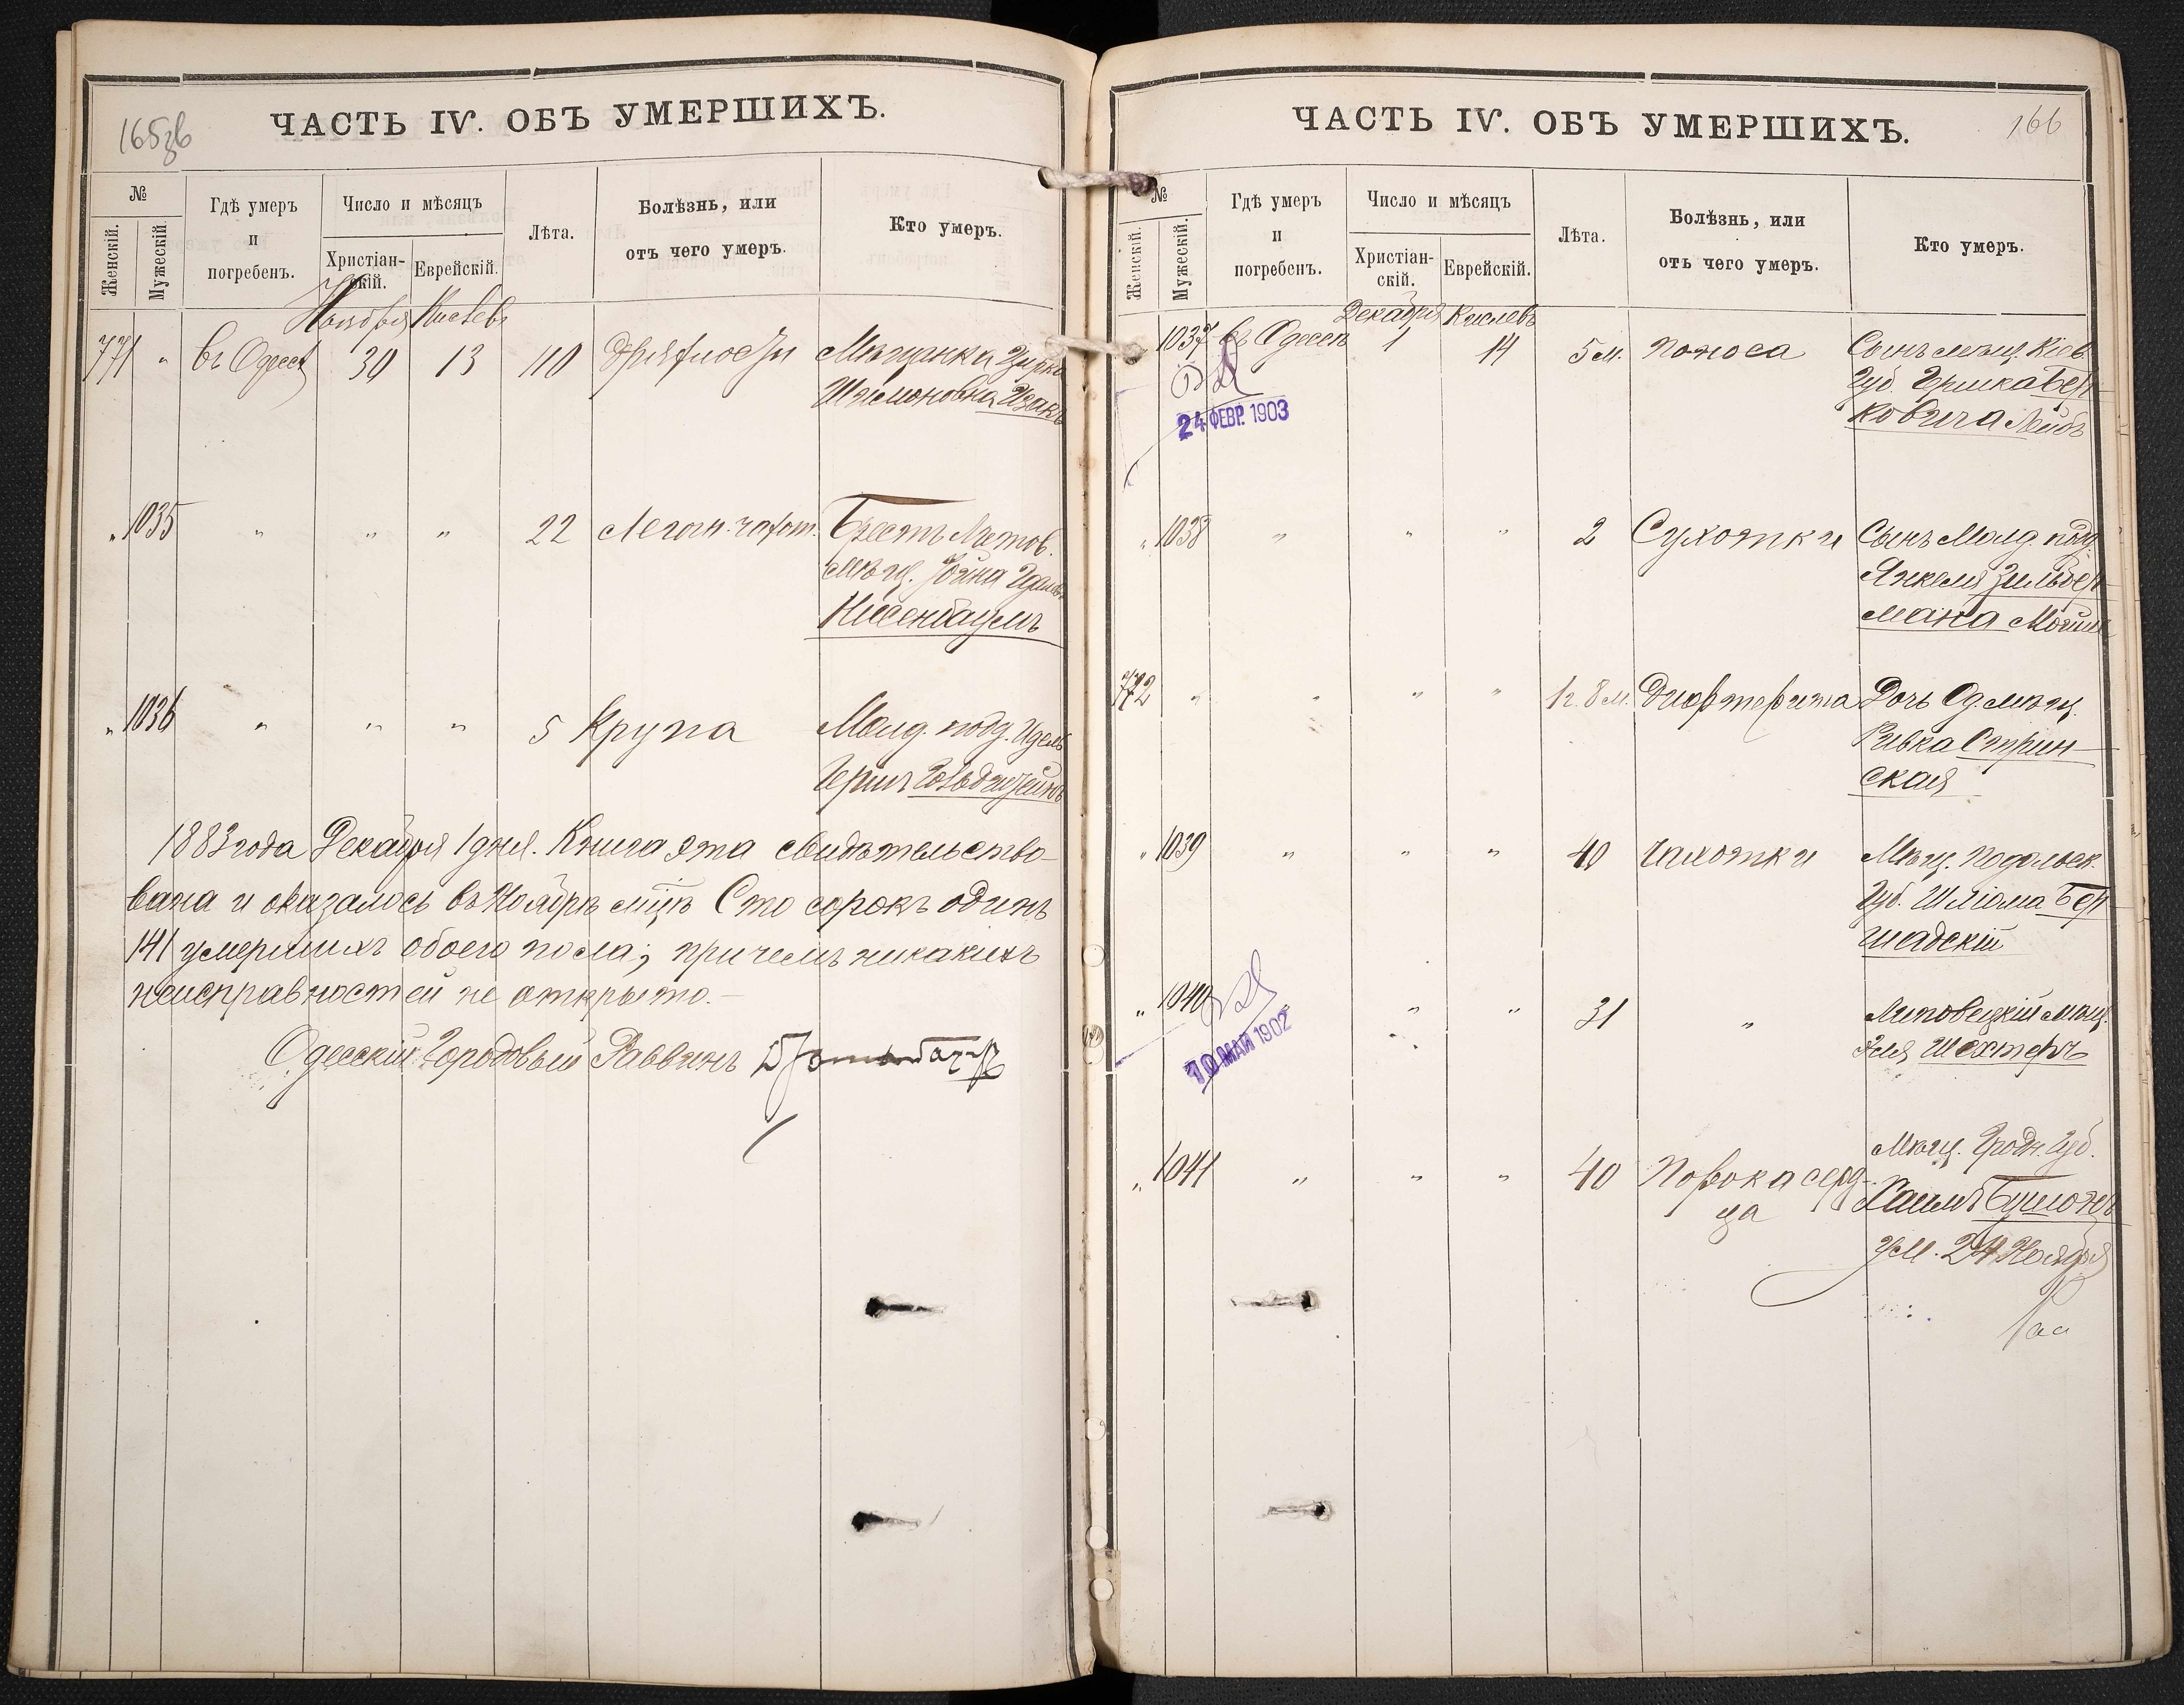 165 об
ЧАСТЬ IV. ОБЪ УМЕРШИХЪ.
№
Женскій.
Мужескій.
Гдѣ умеръ
и
погребенъ.
Число и мѣсяцъ
Христіан-
скій.
Еврейскій.
Лѣта.
Болѣзнь, или
отъ чего умеръ.
Кто умеръ.
Ноября Кислевъ
771 " въ Одессѣ 30 13 110 Дряхлости Мѣщанка Цирка
Шимоновна Изакъ
" 1035 " " " 22 Легочн. чахот. Брестъ Литов.
мѣщ. Іойна Идель
Нисенбаумъ
" 1036 " " " 5 Крупа Молд. подд. Идель
Гершъ Гольдштейнъ
1883 года Декабря 1 дня. Книга эта свидѣтельство-
вана и оказалось въ Ноябрѣ мцѣ Сто сорокъ одинъ
141 умершихъ обоего пола; причемъ никакихъ
неисправностей не открыто.—
Одесскій Городовый Раввинъ
166
ЧАСТЬ IV. ОБЪ УМЕРШИХЪ.
№
Женскій.
Мужескій.
Гдѣ умеръ
и
погребенъ.
Число и мѣсяцъ
Христіан-
скій.
Еврейскій.
Лѣта.
Болѣзнь, или
отъ чего умеръ.
Кто умеръ.
Декабря Кислевъ
1037 въ Одессѣ 1 14 5 м. Поноса Сынъ мѣщ. Кіев.
Губ. Гершка Бер-
ковича Лейбъ
24 ФЕВР. 1903
" 1038 " " " 2 Сухотки Сынъ Молд. подд.
Янкеля Зильбер-
мана
772 " " " " 1 г. 8 м. Дифтерита Дочь Од. мѣщ.
Ривка Стрин-
ская
" 1039 " " " 40 Чахотки Мѣщ. Подольск.
Губ. Шліома Бер-
шадскій
" 1040 " " " 31 " Липовецкій мѣщ.
Эля Шехтеръ
10 МАЙ 1902
" 1041 " " " 40 Порока серд-
ца
Мѣщ. Гродн. Губ.
Хаимъ
ум. 24 Ноября